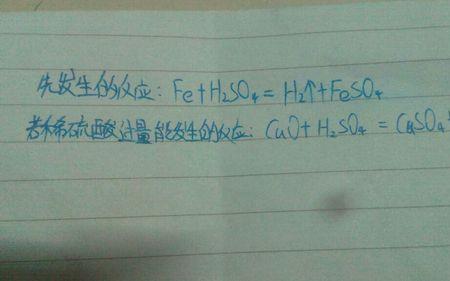 先发生的反应：Fe+H₂SO₄=H₂↑+FeSO₄
若稀硫酸过量能发生的反应：CuO+H₂SO₄=CuSO₄